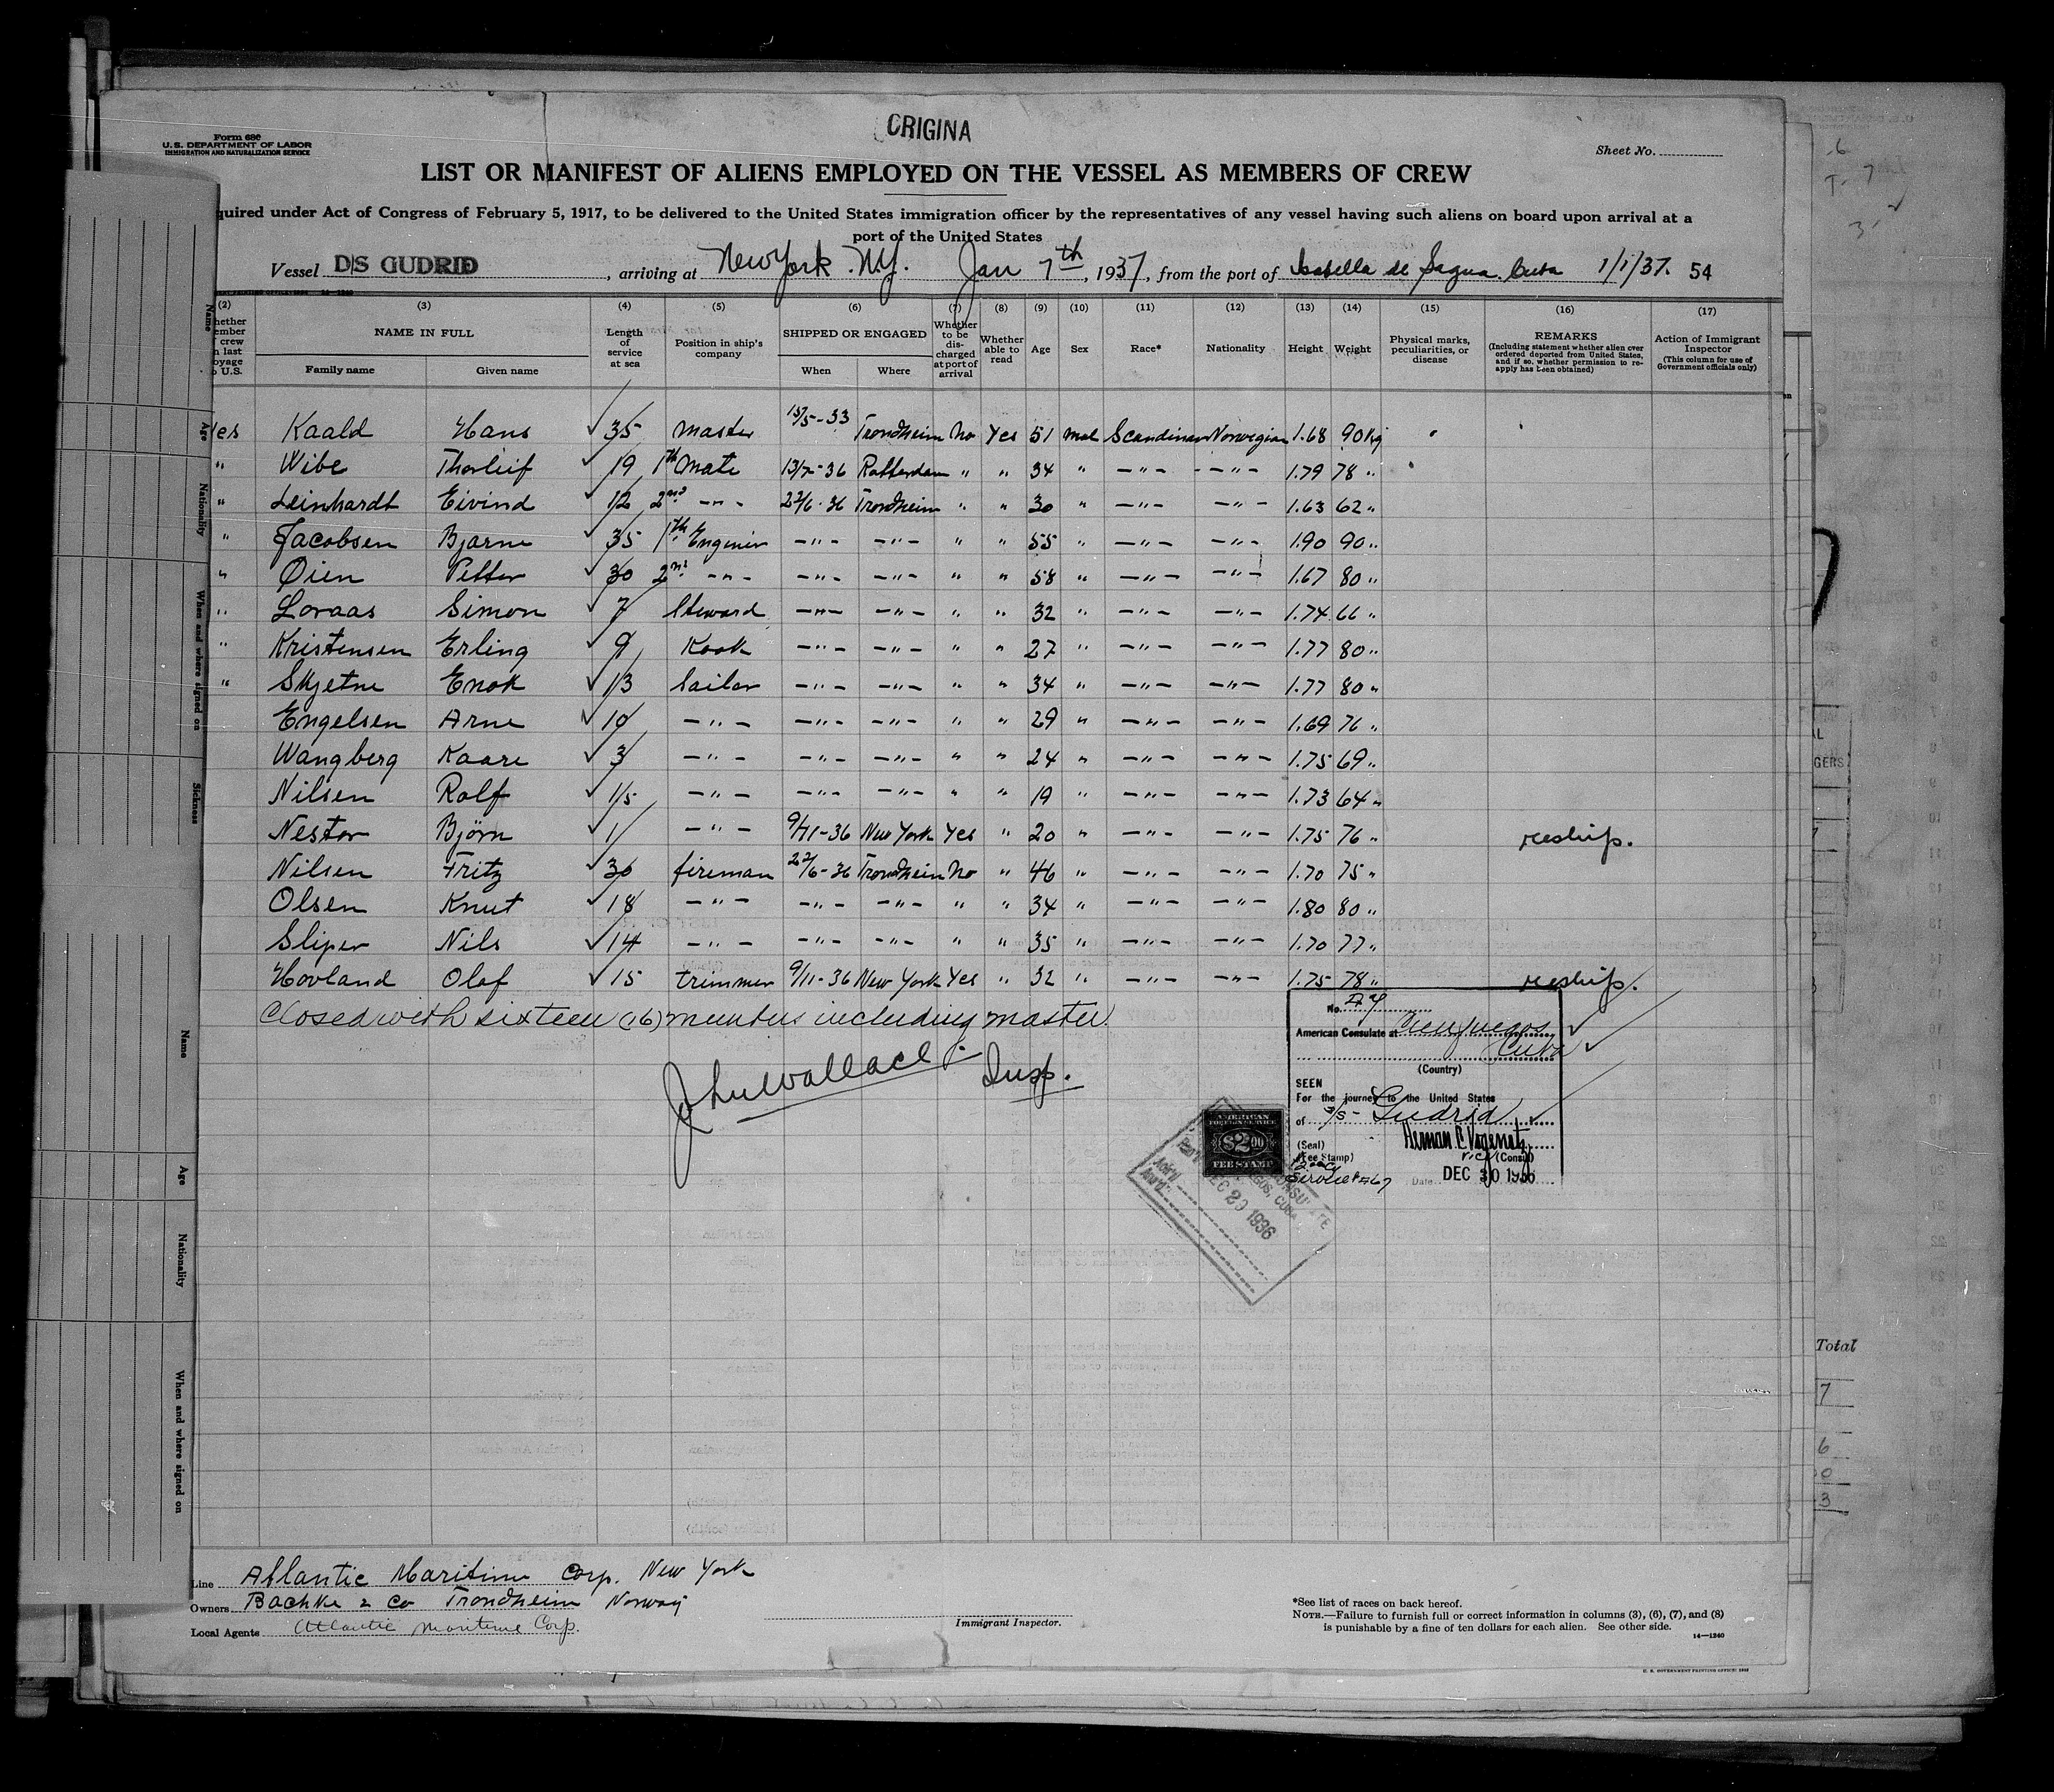 CRIGINA
Form 680
U.S. DEPARTMENT OF LABOR
IMMIGRATION AND NATURALIZATION SERVICE
Sheet No.
LIST OR MANIFEST OF ALIENS EMPLOYED ON THE VESSEL AS MEMBERS OF CREW
quired under Act of Congress of February 5, 1917, to be delivered to the United States immigration officer by the representatives of any vessel having such aliens on board upon arrival at a
port of the United States
Vessel D/S GUDRID, arriving at New York. N.Y. Jan 7th, 1937, from the port of Isabella de Sagua. Cuba 1/1/37. 54
(2) (3) (4) (5) (6) (7) (8) (9) (10) (11) (12) (13) (14) (15) (16) (17)
hether ember crew n last oyage U.S. NAME IN FULL Length of service at sea Position in ship's company SHIPPED OR ENGAGED Whether to be discharged at port of arrival Whether able to read Age Sex Race* Nationality Height Weight Physical marks, peculiarities, or disease REMARKS (Including statement whether alien ever ordered deported from United States, and if so, whether permission to reapply has been obtained) Action of Immigrant Inspector (This column for use of Government officials only)
Family name Given name When Where
Yes Kaald Hans ✓ 35 Master 15/5-33 Trondheim No Yes 51 Mal Scandinav Norwegian 1.68 90 Kg
" Wibe Thorleif ✓ 19 1th Mate 13/7-36 Rotterdam " " 34 " -"- -"- 1.79 78 "
" Leinhardt Eivind ✓ 12 2nd -"- 22/6-36 Trondheim " " 30 " -"- -"- 1.63 62 "
" Jacobsen Bjarne ✓ 35 1th Enginir -"- -"- " " 55 " -"- -"- 1.90 90 "
" Øien Petter ✓ 30 2nd -"- -"- -"- " " 58 " -"- -"- 1.67 80 "
" Loraas Simon ✓ 7 Steward -"- -"- " " 32 " -"- -"- 1.74 66 "
" Kristensen Erling ✓ 9 Kook -"- -"- " " 27 " -"- -"- 1.77 80 "
" Skjetne Enok ✓ 13 Sailor -"- -"- " " 34 " -"- -"- 1.77 80 "
Engelsen Arne ✓ 10 -"- -"- -"- " " 29 " -"- -"- 1.69 76 "
Wangberg Kaare ✓ 3 -"- -"- -"- " " 24 " -"- -"- 1.75 69 "
Nilsen Rolf ✓ 1/5 -"- -"- -"- " " 19 " -"- -"- 1.73 64 "
Nestor Björn ✓ 1 -"- 9/11-36 New York Yes " 20 " -"- -"- 1.75 76 " reship.
Nilsen Fritz ✓ 30 fireman 22/6-36 Trondheim No " 46 " -"- -"- 1.70 75 "
Olsen Knut ✓ 18 -"- -"- -"- " " 34 " -"- -"- 1.80 80 "
Sliper Nils ✓ 14 -"- -"- -"- " " 35 " -"- -"- 1.70 77 "
Hovland Olaf ✓ 15 trimmer 9/11-36 New York Yes " 32 " -"- -"- 1.75 78 " reship.
Closed with sixteen (16) members including master.
John Wallace Insp.
No.
American Consulate at Cienfuegos ✓
Cuba ✓
(Country)
SEEN
For the journey to the United States
of S/S - Gudrid ✓
(Seal)
(Fee Stamp) Vice (Consul)
Service # 567
Date DEC 30 1936
AMERICAN
FOREIGN SERVICE
$2.00
FEE STAMP
DEC 29 1936
Line Atlantic Maritime Corp. New York
Owners Bachke & Co Trondheim Norway
Local Agents Atlantic Maritime Corp.
Immigrant Inspector.
*See list of races on back hereof.
NOTE.—Failure to furnish full or correct information in columns (3), (6), (7), and (8)
is punishable by a fine of ten dollars for each alien. See other side.
14—1240
U. S. GOVERNMENT PRINTING OFFICE
Name
Age
Nationality
When and where signed on
Sickness
Name
Age
Nationality
When and where signed on
GERS
Total
7
6
0
3